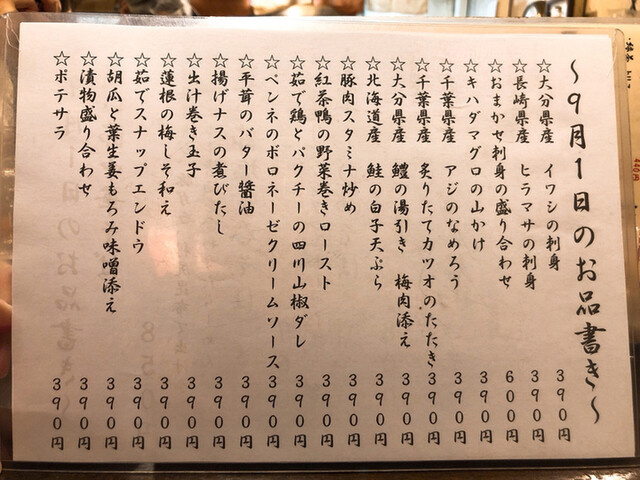 ～9月1日のお品書き～
☆大分県産 イワシの刺身 390円
☆長崎県産 ヒラマサの刺身 390円
☆おまかせ刺身の盛り合わせ 600円
☆キハダマグロの山かけ 390円
☆千葉県産 アジのなめろう 390円
☆千葉県産 炙りたてカツオのたたき 390円
☆大分県産 鱧の湯引き 梅肉添え 390円
☆北海道産 鮭の白子天ぷら 390円
☆豚肉スタミナ炒め 390円
☆紅茶鴨の野菜巻きロースト 390円
☆茹で鶏とパクチーの四川山椒ダレ 390円
☆ペンネのボロネーゼクリームソース 390円
☆平茸のバター醤油 390円
☆揚げナスの煮びたし 390円
☆出汁巻き玉子 390円
☆蓮根の梅しそ和え 390円
☆茹でスナップエンドウ 390円
☆胡瓜と葉生姜もろみ味噌添え 390円
☆漬物盛り合わせ 390円
☆ポテサラ 390円